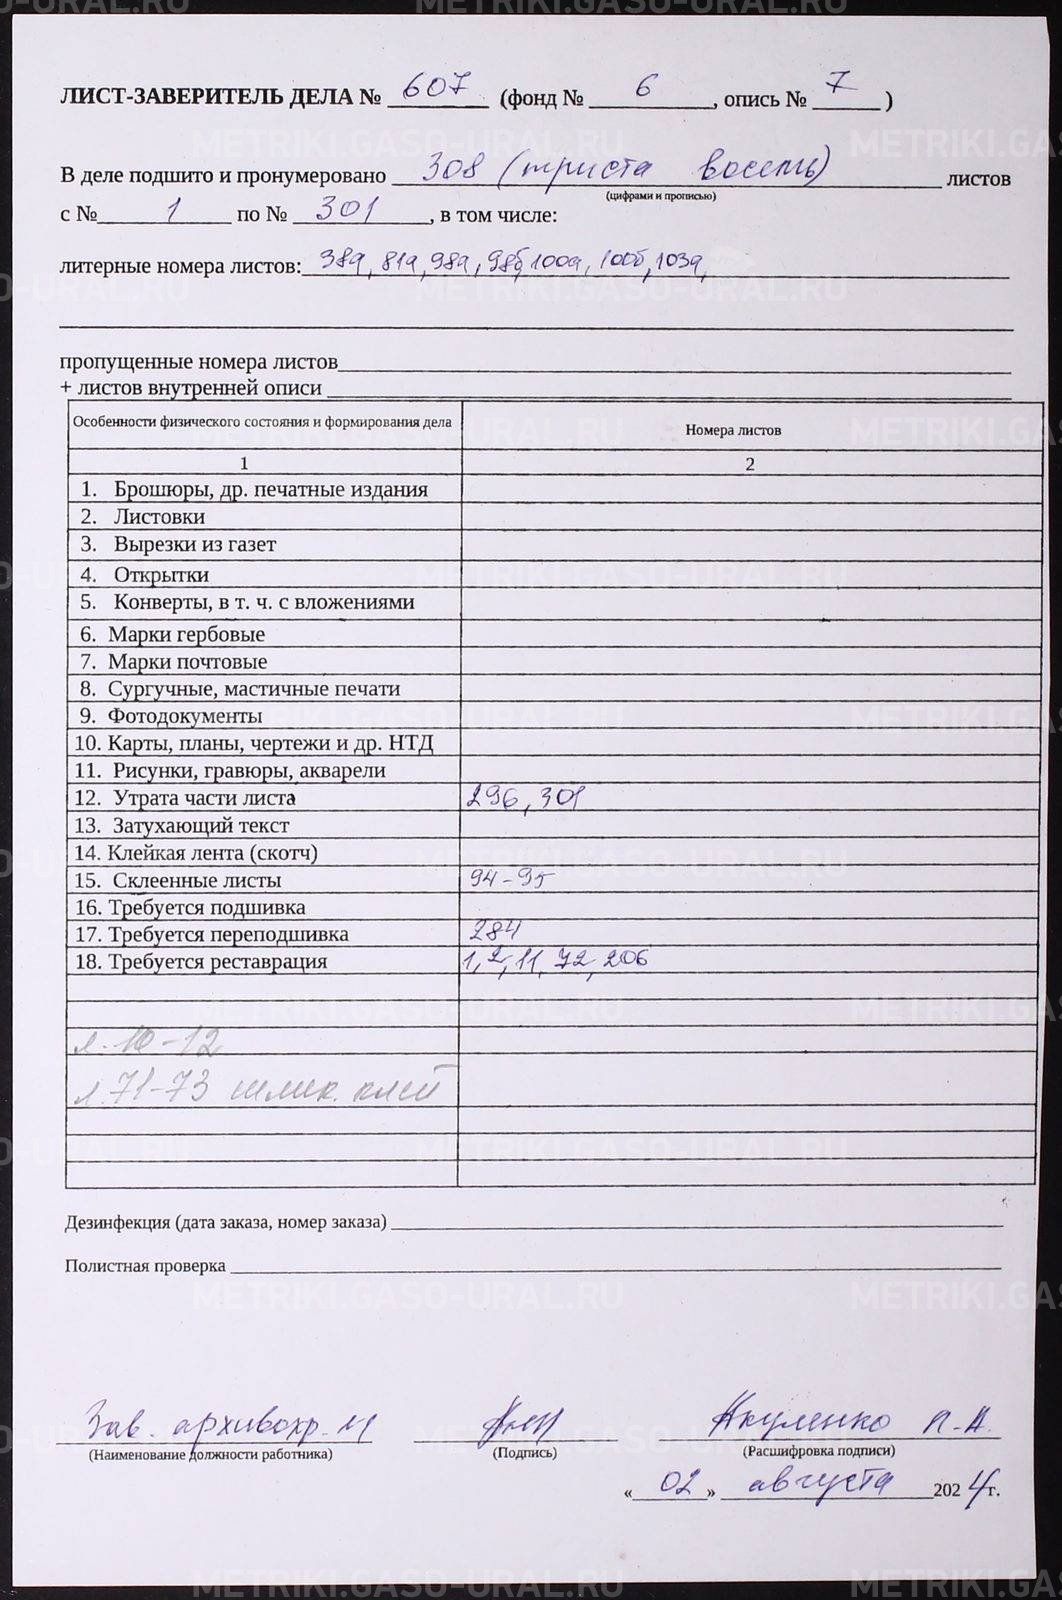 ЛИСТ-ЗАВЕРИТЕЛЬ ДЕЛА № 607 (фонд № 6, опись № 7)
В деле подшито и пронумеровано 308 (триста восемь) листов
(цифрами и прописью)
с № 1 по № 301, в том числе:
литерные номера листов: 38а, 81а, 98а, 98б, 100а, 100б, 103а,
пропущенные номера листов
+ листов внутренней описи
Особенности физического состояния и формирования дела Номера листов
1 2
1. Брошюры, др. печатные издания
2. Листовки
3. Вырезки из газет
4. Открытки
5. Конверты, в т. ч. с вложениями
6. Марки гербовые
7. Марки почтовые
8. Сургучные, мастичные печати
9. Фотодокументы
10. Карты, планы, чертежи и др. НТД
11. Рисунки, гравюры, акварели
12. Утрата части листа 296, 301
13. Затухающий текст
14. Клейкая лента (скотч)
15. Склеенные листы 94-95
16. Требуется подшивка
17. Требуется переподшивка 284
18. Требуется реставрация 1, 2, 11, 72, 206
л. 10-12
л. 71-73 клей
Дезинфекция (дата заказа, номер заказа)
Полистная проверка
Зав. архивохр.
(Наименование должности работника) (Подпись) (Расшифровка подписи)
« 02 » августа 2024 г.
METRIKI.GASO-URAL.RU